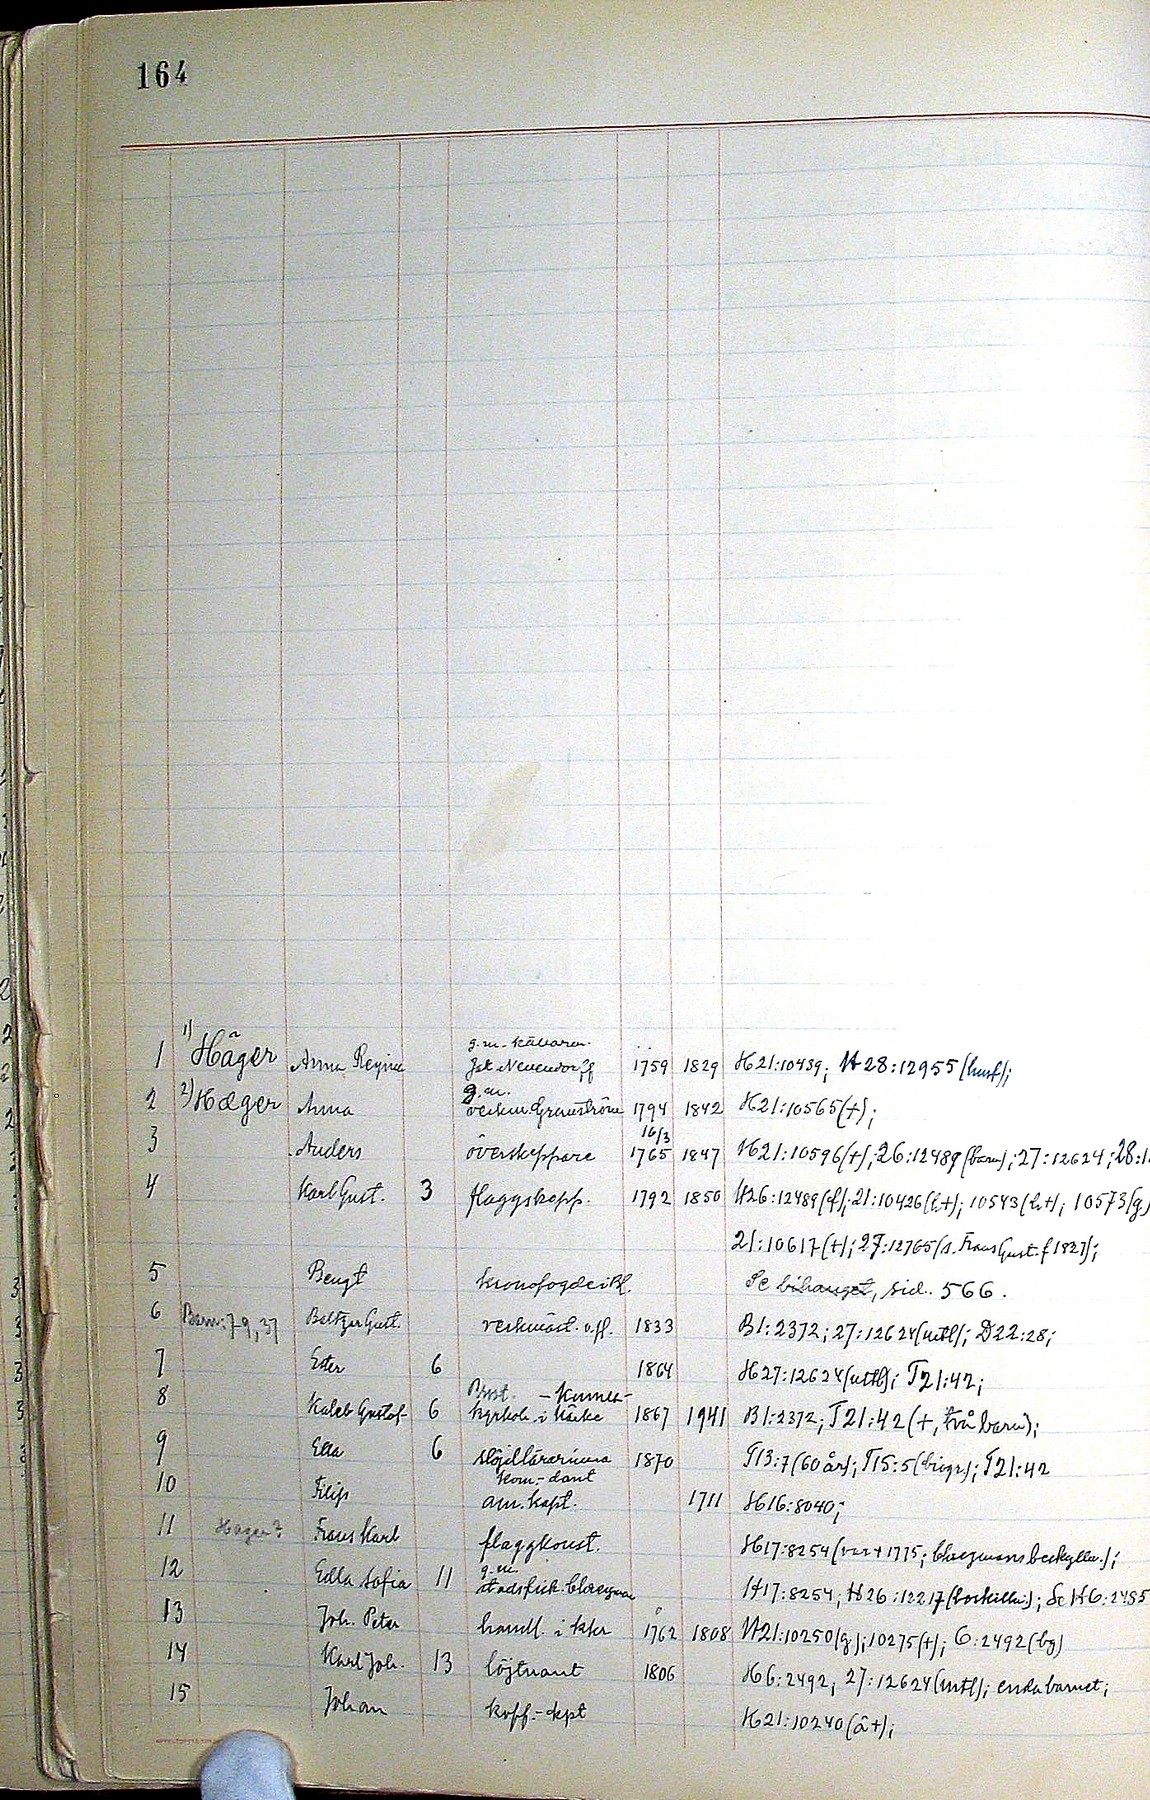 164
g.m. källaren.
1 1) Häger Anna Regina Jak Nevendorff 1759 1829 H21:10439; H28:12955 (hust);
g.m.
2 2) Hæger Anna Granström 1794 1842 H21:10565(+);
16/3
3 Anders överskeppare 1765 1847 H21:10596(+); 26:12489 (barn); 27:12624; 28:1
4 Karl Gust. 3 flaggskepp. 1792 1850 H26:12489(f); 21:10426(h+); 10543(h+); 10573(g)
21:10617(+); 27:12765(s. Frans Gust. f 1827);
5 Bengt kronofogde i Bl. Se bihanget, sid. 566.
6 Barn: 7-9, 37 Beltzar Gust. verkmäst. o.ff. 1833 B1:2372; 27:12624(utl); D22:28;
7 Ester 6 1864 H27:12624(utl); T21:42;
8 Kaleb Gustof 6 kyrkoh. i 1867 1941 B1:2372; T21:42 (+, två barn);
9 Ella 6 slöjdlärarinna 1870 T13:7 (60 år); T15:5 (biogr.); T21:42
kom-dant
10 Filip am. kapt. 1711 H16:8040;
11 Hagen? Frans Karl flaggkonst. H17:8254
g.m.
12 Edla Sofia 11 stadsfisk. H17:8254; H26:12217; Se H6:2485
13 Joh. Peter handl. i Kkr 1762 1808 H21:10250(g); 10275(+); 6:2492(bg)
14 Karl Joh. 13 löjtnant 1806 H6:2492; 27:12624(utl); enda barnet;
15 Johan koff.-kpt H21:10240(ä+);